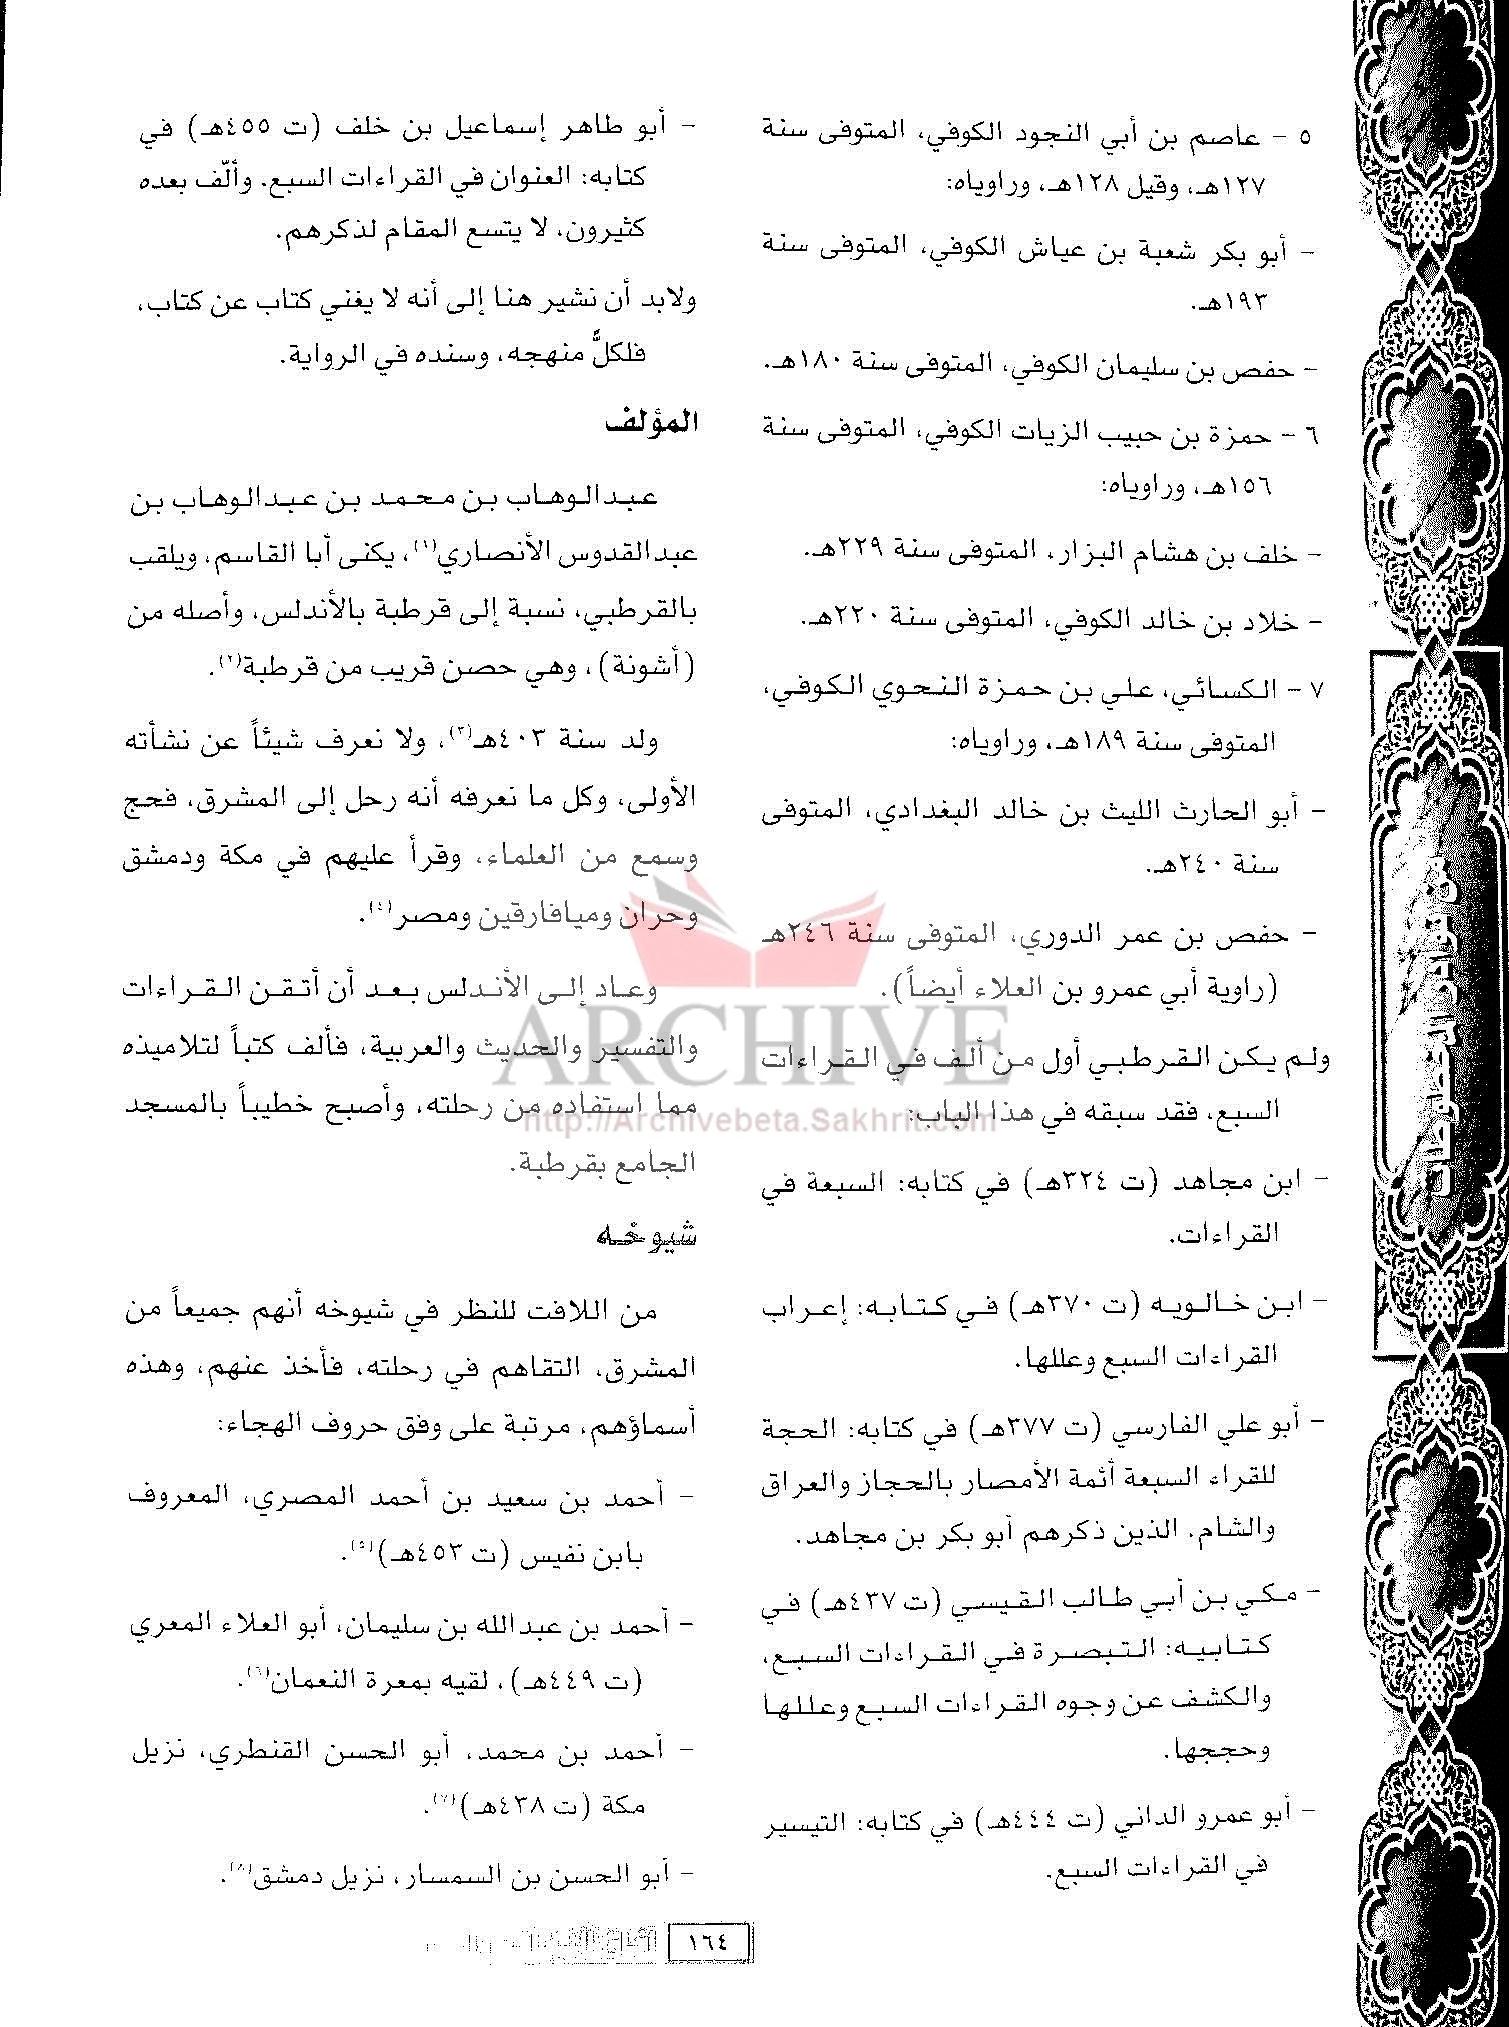 ٥ - عاصم بن أبي النجود الكوفي، المتوفى سنة
١٢٧هـ، وقيل ١٢٨هـ، وراوياه:
- أبو بكر شعبة بن عياش الكوفي، المتوفى سنة
١٩٣هـ.
- حفص بن سليمان الكوفي، المتوفى سنة ١٨٠هـ.
٦ - حمزة بن حبيب الزيات الكوفي، المتوفى سنة
١٥٦هـ، وراوياه:
- خلف بن هشام البزار، المتوفى سنة ٢٢٩هـ.
- خلاد بن خالد الكوفي، المتوفى سنة ٢٢٠هـ.
٧ - الكسائي، علي بن حمزة النحوي الكوفي،
المتوفى سنة ١٨٩هـ، وراوياه:
- أبو الحارث الليث بن خالد البغدادي، المتوفى
سنة ٢٤٠هـ.
- حفص بن عمر الدوري، المتوفى سنة ٢٤٦هـ
(راوية أبي عمرو بن العلاء أيضاً).
ولم يكن القرطبي أول من ألف في القراءات
السبع، فقد سبقه في هذا الباب:
- ابن مجاهد (ت ٣٢٤هـ) في كتابه: السبعة في
القراءات.
- ابن خالويه (ت ٣٧٠هـ) في كتابه: إعراب
القراءات السبع وعللها.
- أبو علي الفارسي (ت ٣٧٧هـ) في كتابه: الحجة
للقراء السبعة أئمة الأمصار بالحجاز والعراق
والشام، الذين ذكرهم أبو بكر بن مجاهد.
- مكي بن أبي طالب القيسي (ت ٤٣٧هـ) في
كتابيه: التبصرة في القراءات السبع،
والكشف عن وجوه القراءات السبع وعللها
وحججها.
- أبو عمرو الداني (ت ٤٤٤هـ) في كتابه: التيسير
في القراءات السبع.
- أبو طاهر إسماعيل بن خلف (ت ٤٥٥هـ) في
كتابه: العنوان في القراءات السبع. وألّف بعده
كثيرون، لا يتسع المقام لذكرهم.
ولابد أن نشير هنا إلى أنه لا يغني كتاب عن كتاب،
فلكلٍّ منهجه، وسنده في الرواية.
المؤلف
عبدالوهاب بن محمد بن عبدالوهاب بن
عبدالقدوس الأنصاري(١)، يكنى أبا القاسم، ويلقب
بالقرطبي، نسبة إلى قرطبة بالأندلس، وأصله من
(أشونة)، وهي حصن قريب من قرطبة(٢).
ولد سنة ٤٠٣هـ(٣)، ولا نعرف شيئاً عن نشأته
الأولى، وكل ما نعرفه أنه رحل إلى المشرق، فحج
وسمع من العلماء، وقرأ عليهم في مكة ودمشق
وحران وميافارقين ومصر(٤).
وعاد إلى الأندلس بعد أن أتقن القراءات
والتفسير والحديث والعربية، فألف كتباً لتلاميذه
مما استفاده من رحلته، وأصبح خطيباً بالمسجد
الجامع بقرطبة.
شيوخه
من اللافت للنظر في شيوخه أنهم جميعاً من
المشرق، التقاهم في رحلته، فأخذ عنهم، وهذه
أسماؤهم، مرتبة على وفق حروف الهجاء:
- أحمد بن سعيد بن أحمد المصري، المعروف
بابن نفيس (ت ٤٥٣هـ)(٥).
- أحمد بن عبدالله بن سليمان، أبو العلاء المعري
(ت ٤٤٩هـ)، لقيه بمعرة النعمان(٦).
- أحمد بن محمد، أبو الحسن القنطري، نزيل
مكة (ت ٤٣٨هـ)(٧).
- أبو الحسن بن السمسار، نزيل دمشق(٨).
ARCHIVE
http://Archivebeta.Sakhrit.com
من نوادر المخطوطات
١٦٤